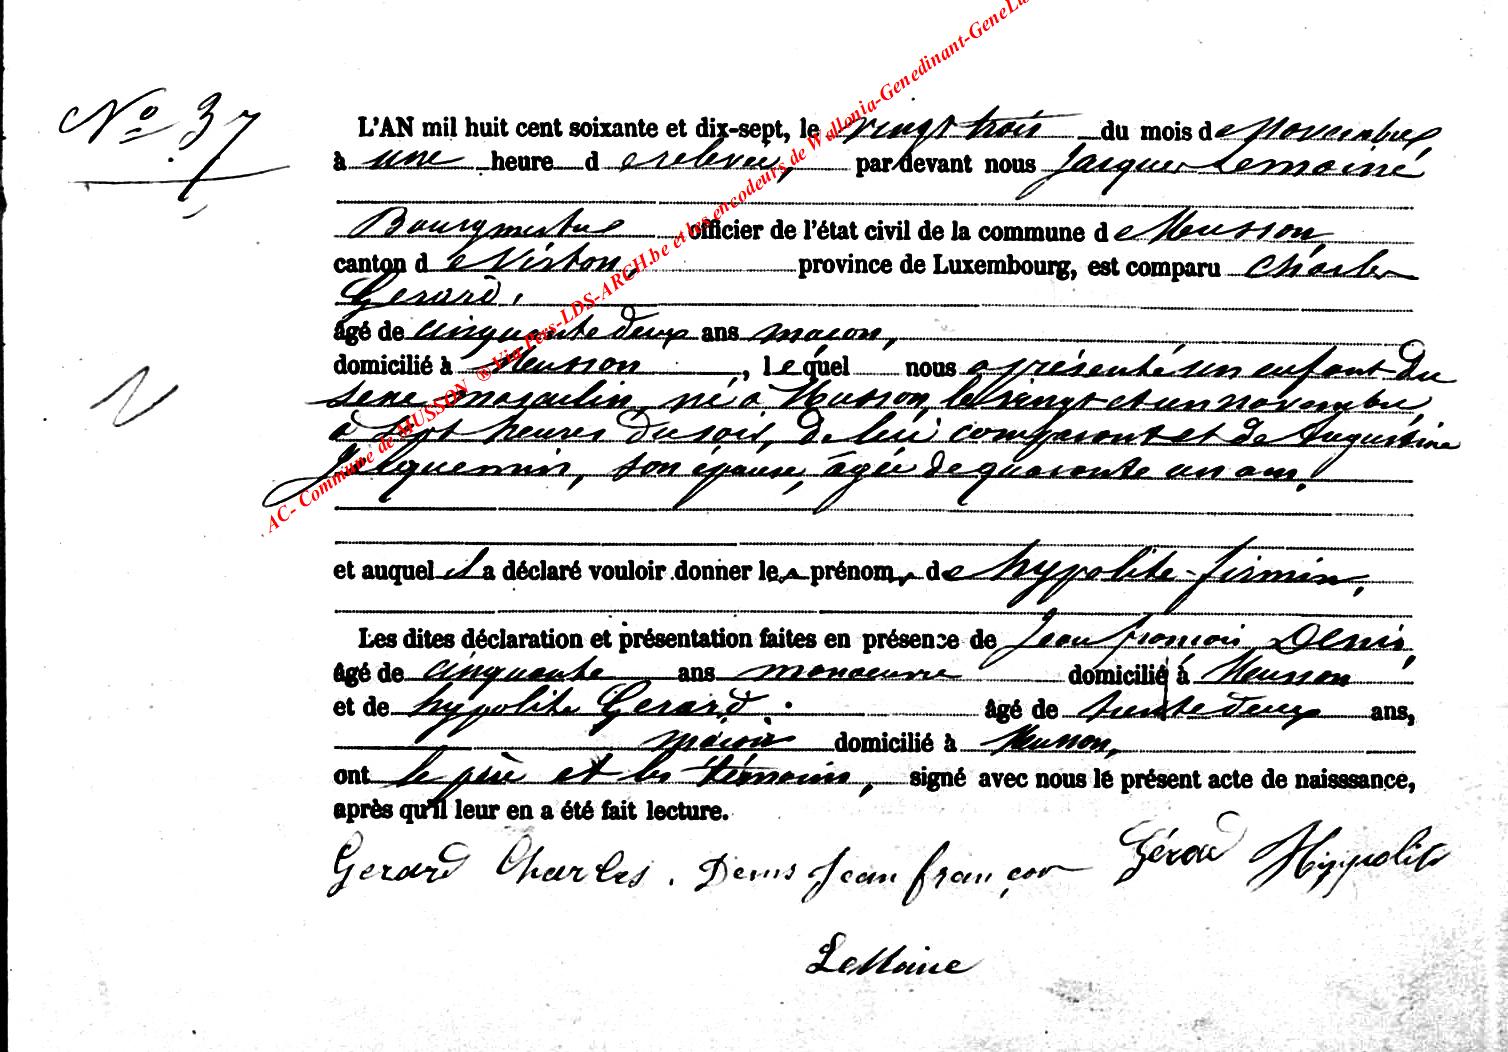 N° 37
L'AN mil huit cent soixante et dix-sept, le vingt trois du mois de Novembre,
à une heure de relevée, par devant nous Jacques Lemoine
Bourgmestre officier de l'état civil de la commune de Musson,
canton de Virton, province de Luxembourg, est comparu Charles
Gerard,
âgé de cinquante deux ans maçon,
domicilié à Musson, lequel nous a présenté un enfant du
sexe masculin, né à Musson, le vingt et un novembre,
à sept heures du soir, de lui comparant et de Augustine
Jacquemin, son épouse, âgée de quarante un ans.
et auquel il a déclaré vouloir donner les prénoms de hypolite-firmin,
Les dites déclaration et présentation faites en présence de Jean françois Denis,
âgé de cinquante ans manoeuvre domicilié à Musson
et de hypolite Gerard. âgé de trente deux ans,
maçon domicilié à Musson,
ont le père et les témoins, signé avec nous le présent acte de naisssance,
après qu'il leur en a été fait lecture.
Gerard Charles. Denis Jean françois Gérard Hippolite
LeMoine
AC- Commune de MUSSON ® Via Pers-LDS-ARCH.be et les encodeurs de Wallonia-Genedinant-GeneLu